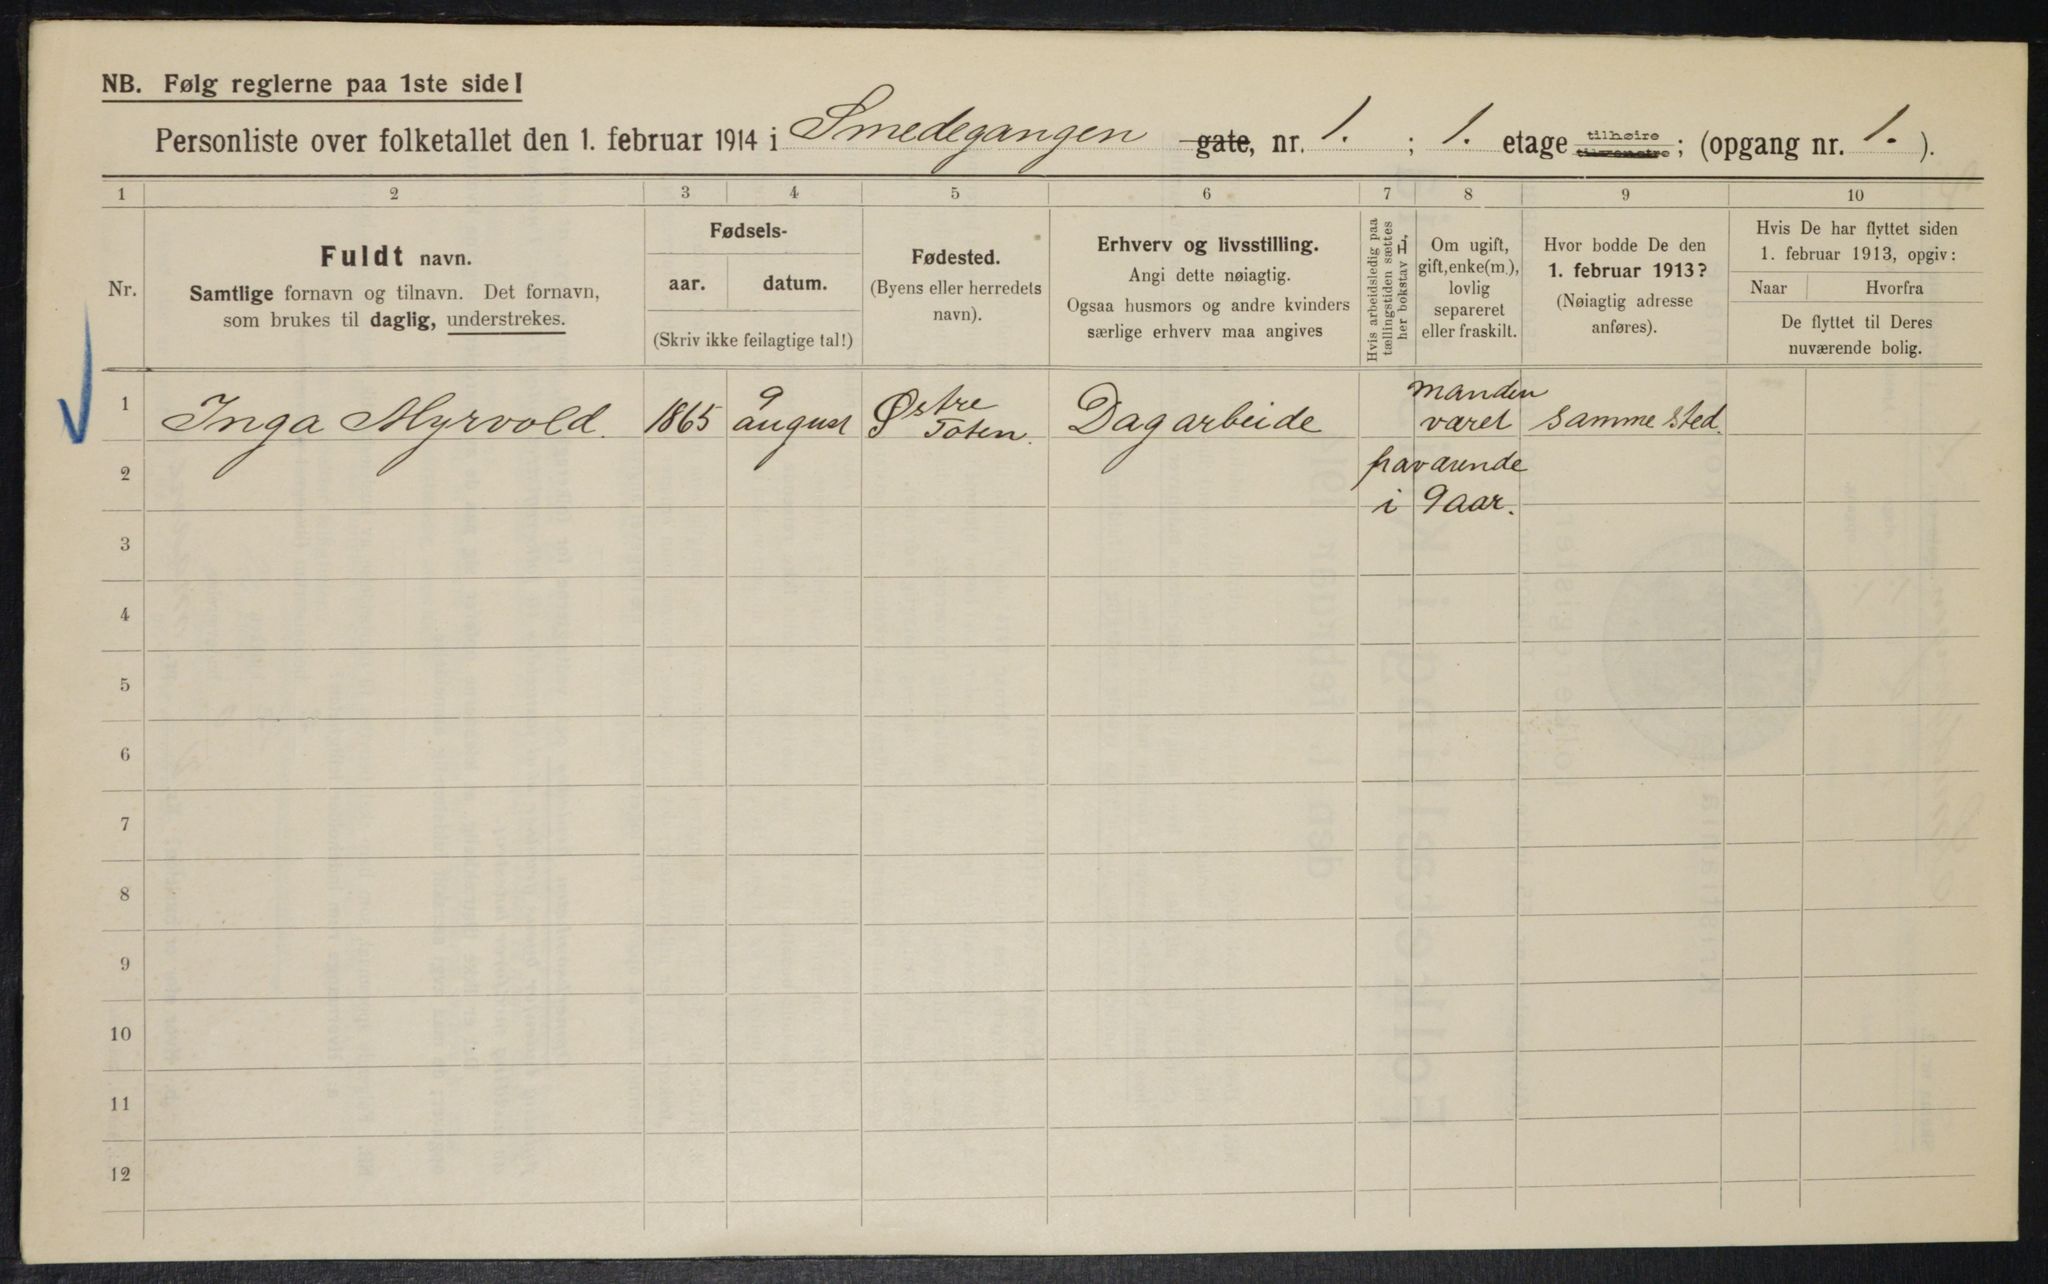 NB. Følg reglerne paa 1ste side!
Personliste over folketallet den 1. februar 1914 i Smedegangen gate, nr. 1. ; 1. etage tilhøire tilvenstre; (opgang nr. 1. ).
1 2 3 4 5 6 7 8 9 10
Nr.
Fuldt navn.
Samtlige fornavn og tilnavn. Det fornavn,
som brukes til daglig, understrekes.
Fødsels-
aar. datum.
(Skriv ikke feilagtige tal!)
Fødested.
(Byens eller herredets
navn).
Erhverv og livsstilling.
Angi dette nøiagtig.
Ogsaa husmors og andre kvinders
særlige erhverv maa angives
Hvis arbeidsledig paa
tællingstiden sættes
her bokstav L,
Om ugift,
gift, enke(m.),
lovlig
separeret
eller fraskilt.
Hvor bodde De den
1. februar 1913?
(Nøiagtig adresse
anføres).
Hvis De har flyttet siden
1. februar 1913, opgiv:
Naar Hvorfra
De flyttet til Deres
nuværende bolig.
1 Inga Myrvold. 1865 9 august Østre Toten. Dagarbeide manden været samme sted.
2 fraværende
i 9 aar.
3
4
5
6
7
8
9
10
11
12